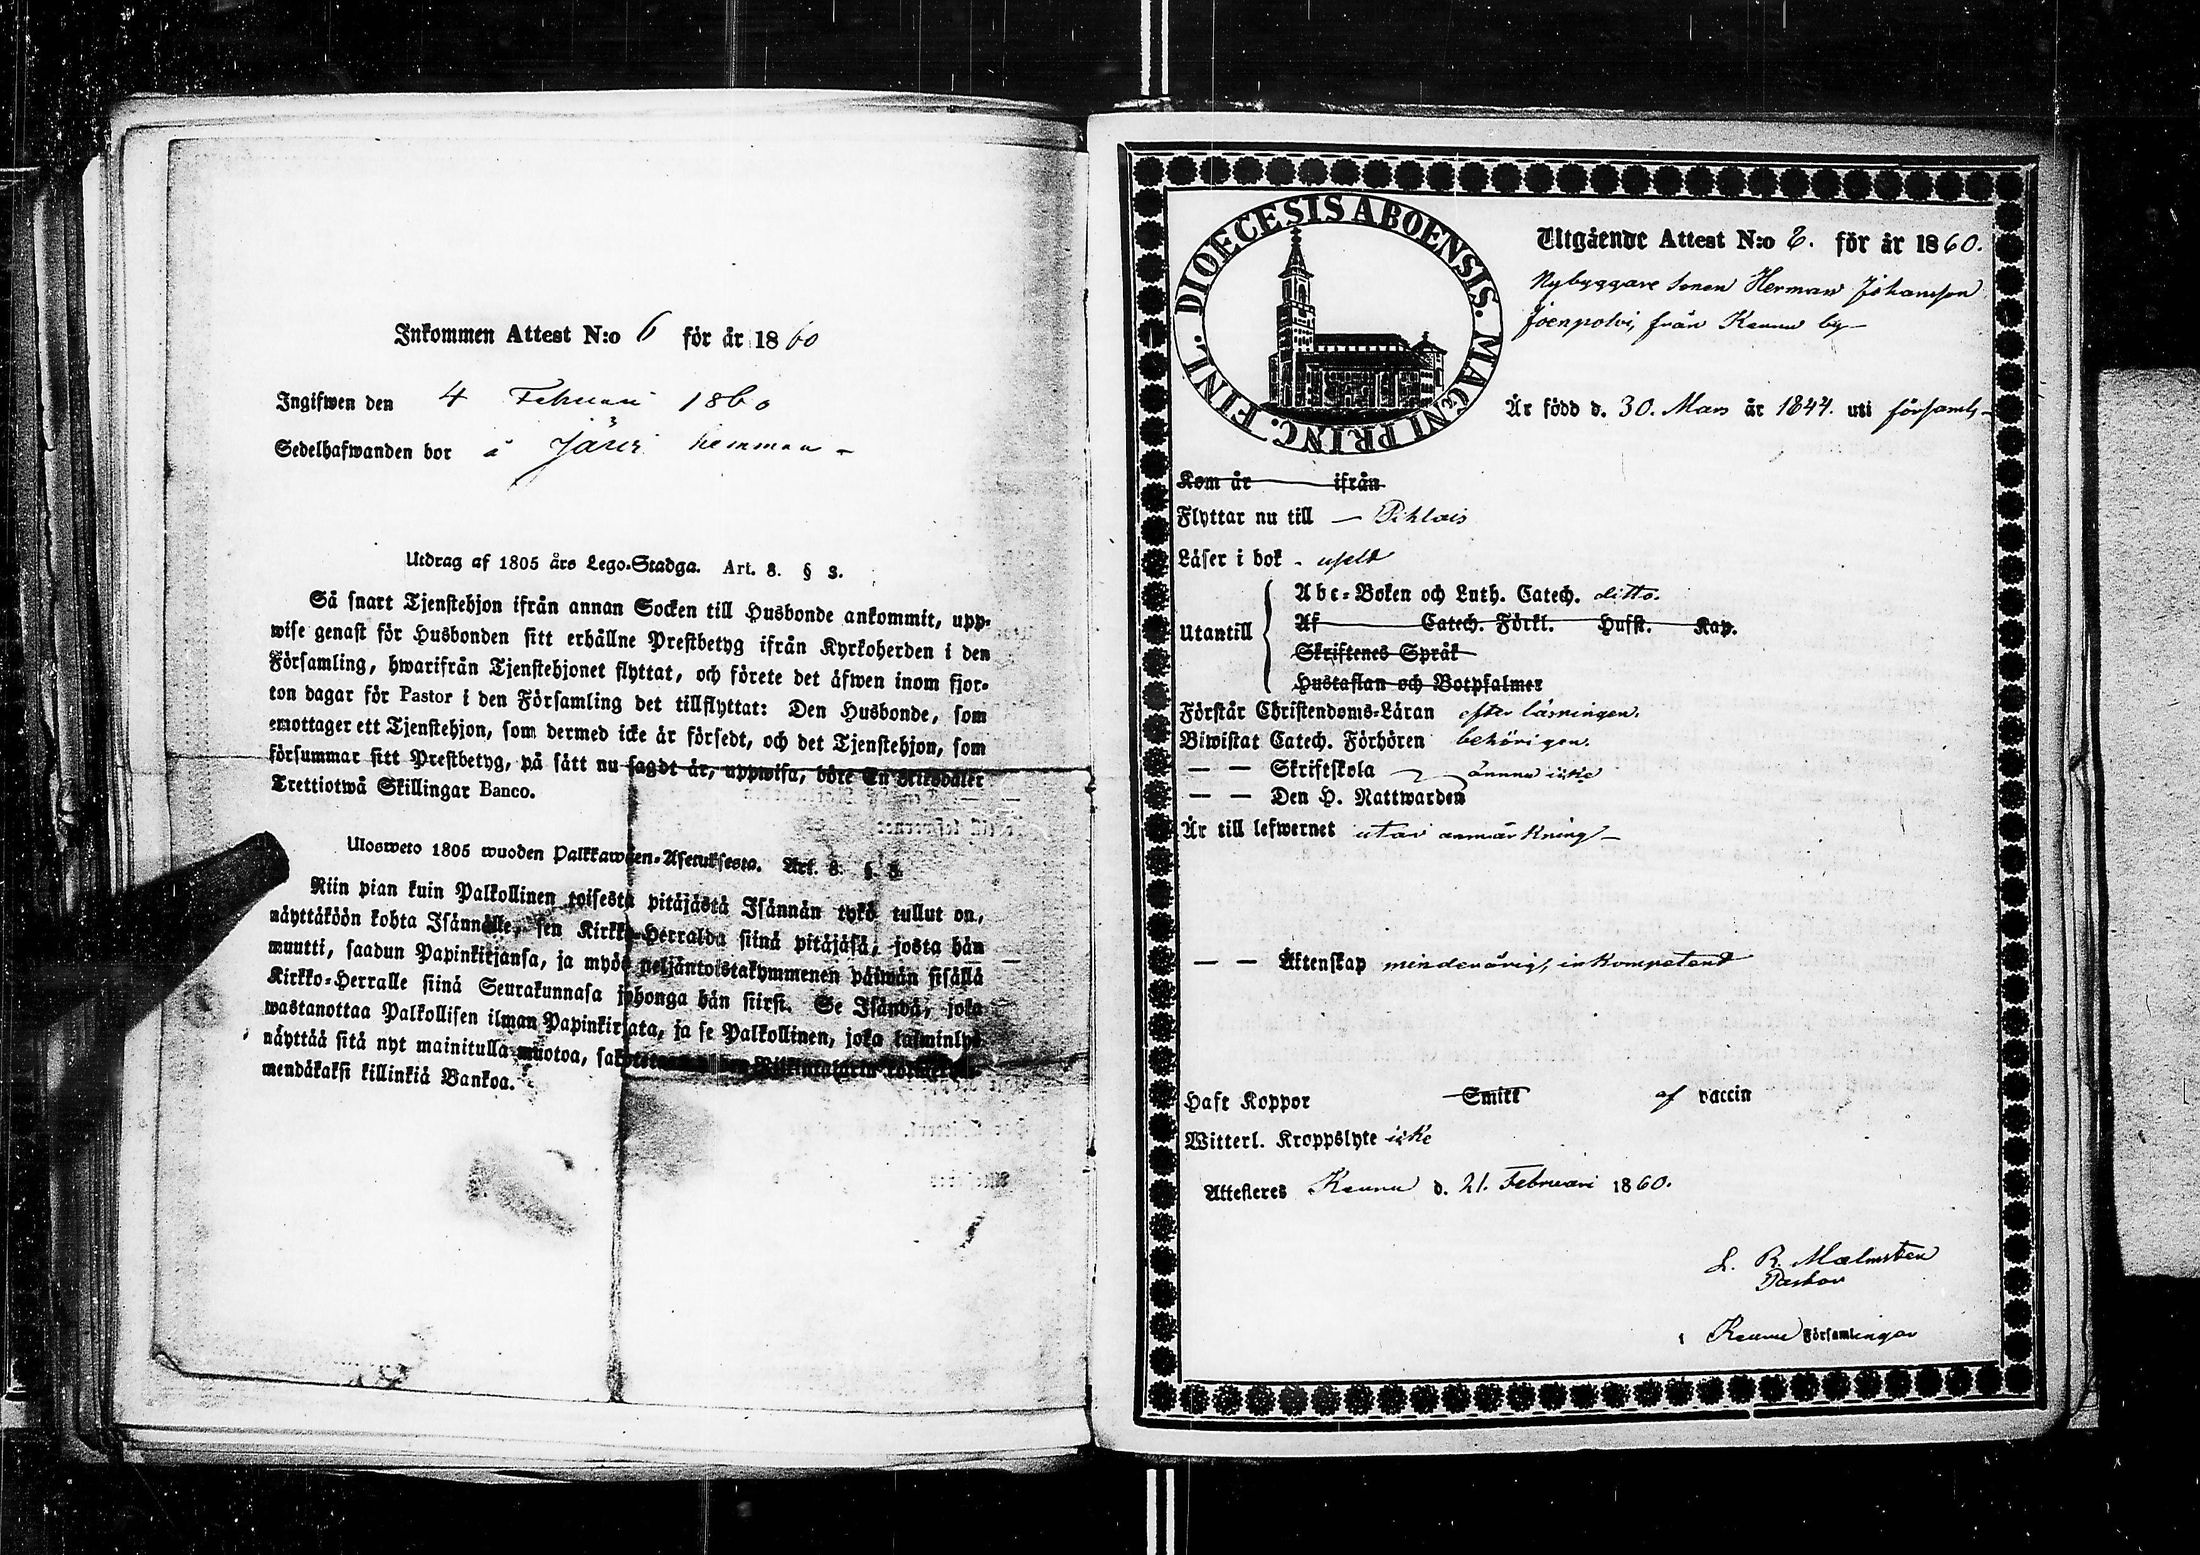 Inkommen Attest N:o 6 för år 1860
Ingifwen den 4 Februari 1860
Sedelhafwanden bor å Järvi hemman -
Utdrag af 1805 års Lego-Stadga. Art. 8. § 3.
Så snart Tjenstehjon ifrån annan Socken till Husbonde ankommit, upp-
wise genast för Husbonden sitt erhållne Prestbetyg ifrån Kyrkoherden i den
Församling, hwarifrån Tjenstehjonet flyttat, och förete det äfwen inom fjor-
ton dagar för Pastor i den Församling det tillflyttat: Den Husbonde, som
emottager ett Tjenstehjon, som dermed icke är försedt, och det Tjenstehjon, som
försummar sitt Prestbetyg, på sätt nu sagdt är, uppwisa, böte En Riksdaler
Trettiotwå Skillingar Banco.
Ulosweto 1805 wuoden Palkkawäen-Asetuksesta. Art. 8. § 3.
Niin pian kuin Palkollinen toisesta pitäjästä Isännän tykö tullut on,
näyttäköön kohta Isännälle, sen Kirkko-Herralda siinä pitäjäsä, josta hän
muutti, saadun Papinkirjansa, ja myös neljäntoistakymmenen päiwän sisällä
Kirkko-Herralle siinä Seurakunnasa johonga hän siirsi. Se Isändä, joka
wastanottaa Palkollisen ilman Papinkirjata, ja se Palkollinen, joka laiminlyö
näyttää sitä nyt mainitulla muotoa,
mendäkaksi killinkiä Bankoa.
DIOECESIS ABOENSIS. MAGNI PRINC. FINL.
Utgående Attest N:o 2. för år 1860.
Nybyggare sonen Herman Johansson
Joenpolvi, från Keuru by
Är född d. 30. Mars år 1844. uti församl-
Kom år ifrån
Flyttar nu till - Pihlais
Läser i bok - uselt
Utantill
Abc-Boken och Luth. Catech. ditto.
Af Catech. Förkl. Husst. Kap.
Skriftenes Språk
Hustaflan och Botpsalmer
Förstår Christendoms-Läran efter läsningen.
Biwistat Catech. Förhören behörigen.
— — Skriftskola ännu icke
— — Den H. Nattwarden
Är till lefwernet utan anmärkning -
— — Äktenskap minderårig, inkompetent
Haft Koppor Smitt af vaccin
Witterl. Kroppslyte icke
Attesteres Keuru d. 21. Februari 1860.
L. R. Malmsten
Pastor
i Keuru Församlingar